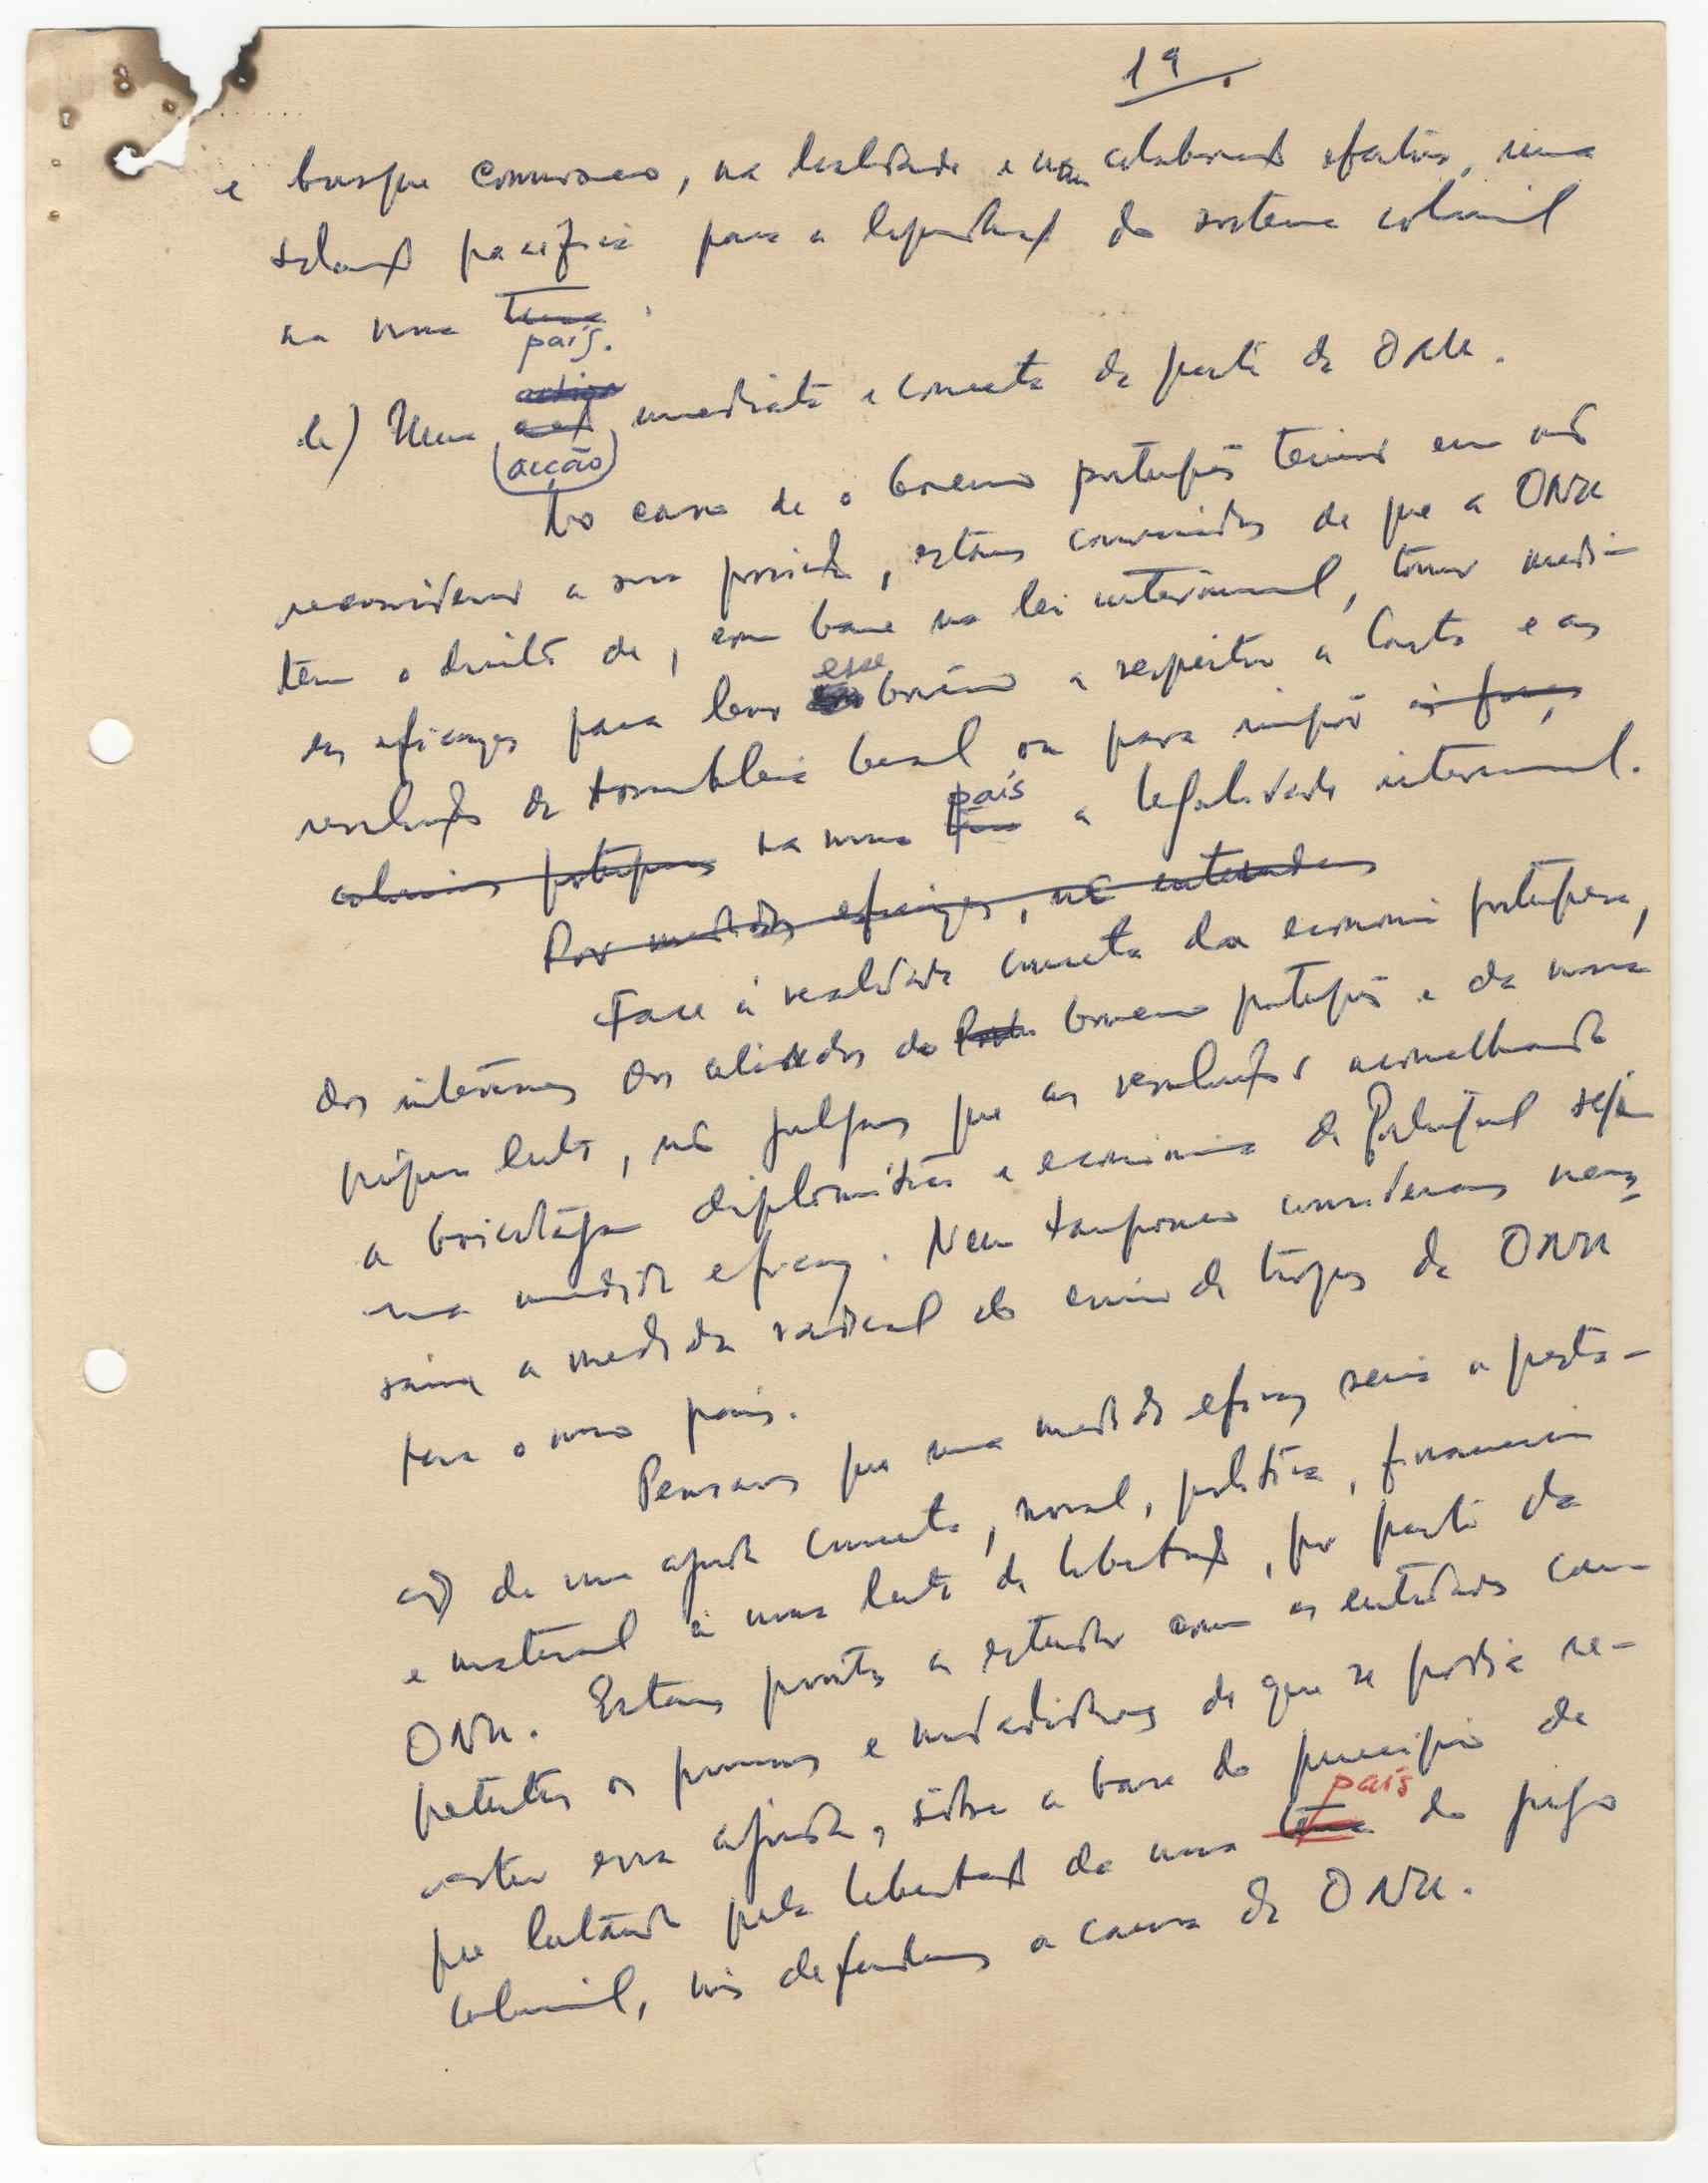 19.
e busque connosco, na lealdade e numa colaboração efectiva, uma
solução pacífica para a liquidação do sistema colonial
na nossa terra.
país.
b) Uma acção imediata e concreta da parte da ONU.
(acção)
No caso de o Governo português teimar em não
reconsiderar a sua posição, estamos convencidos de que a ONU
tem o direito de, com base na lei internacional, tomar medi-
das eficazes para levar esse Governo a respeitar a Carta e as
resoluções da Assembleia Geral ou para impor às forças
país
coloniais portuguesas na nossa terra a legalidade internacional.
Por medidas eficazes, não entendemos
Face à realidade concreta da economia portuguesa,
dos interesses dos aliados do Governo português e da nossa
própria luta, não julgamos que as resoluções aconselhando
a boicotagem diplomática e económica de Portugal seja
uma medida eficaz. Nem tampouco consideramos neces-
sária a medida radical do envio de tropas da ONU
para o nosso país.
Pensamos que uma medida eficaz seria a presta-
ção de uma ajuda concreta, moral, política, financeira
e material à nossa luta de libertação, por parte da
ONU. Estamos prontos a estudar com as entidades com-
petentes os processos e modalidades de que se podia re-
vestir essa ajuda, sobre a base do princípio de
país
que lutando pela libertação da nossa terra do jugo
colonial, nós defendemos a causa da ONU.